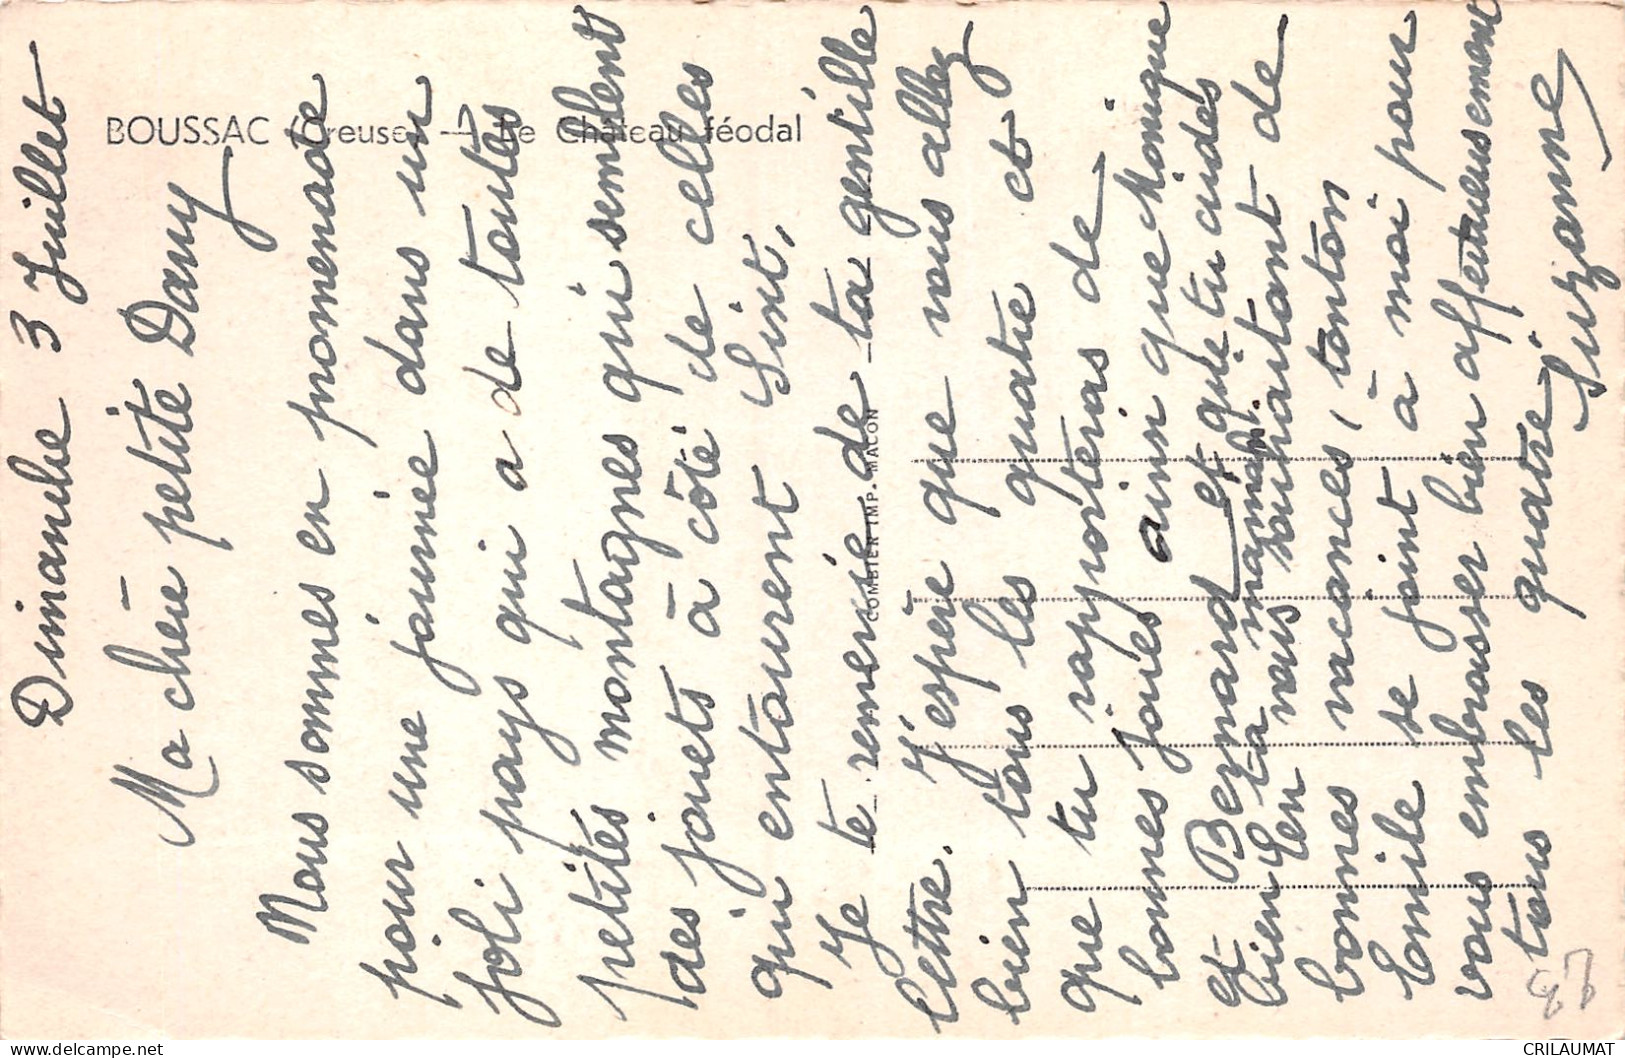 BOUSSAC (Creuse) — Le Château féodal
COMBIER IMP. MACON
Dimanche 3 Juillet
Ma chère petite Dany
Nous sommes en promenade
pour une journée dans un
joli pays qui a de toutes
petites montagnes qui semblent
des jouets à côté de celles
qui entourent Sixt,
Je te remercie de ta gentille
lettre. J'espère que vous allez
bien tous les quatre et
que tu rapporteras de
bonnes joues ainsi que Monique
et Bernard et que tu aides
bien ta maman.
En vous souhaitant de
bonnes vacances, tonton
Emile se joint à moi pour
vous embrasser bien affectueusement
tous les quatre. Suzanne
CRILAUMAT